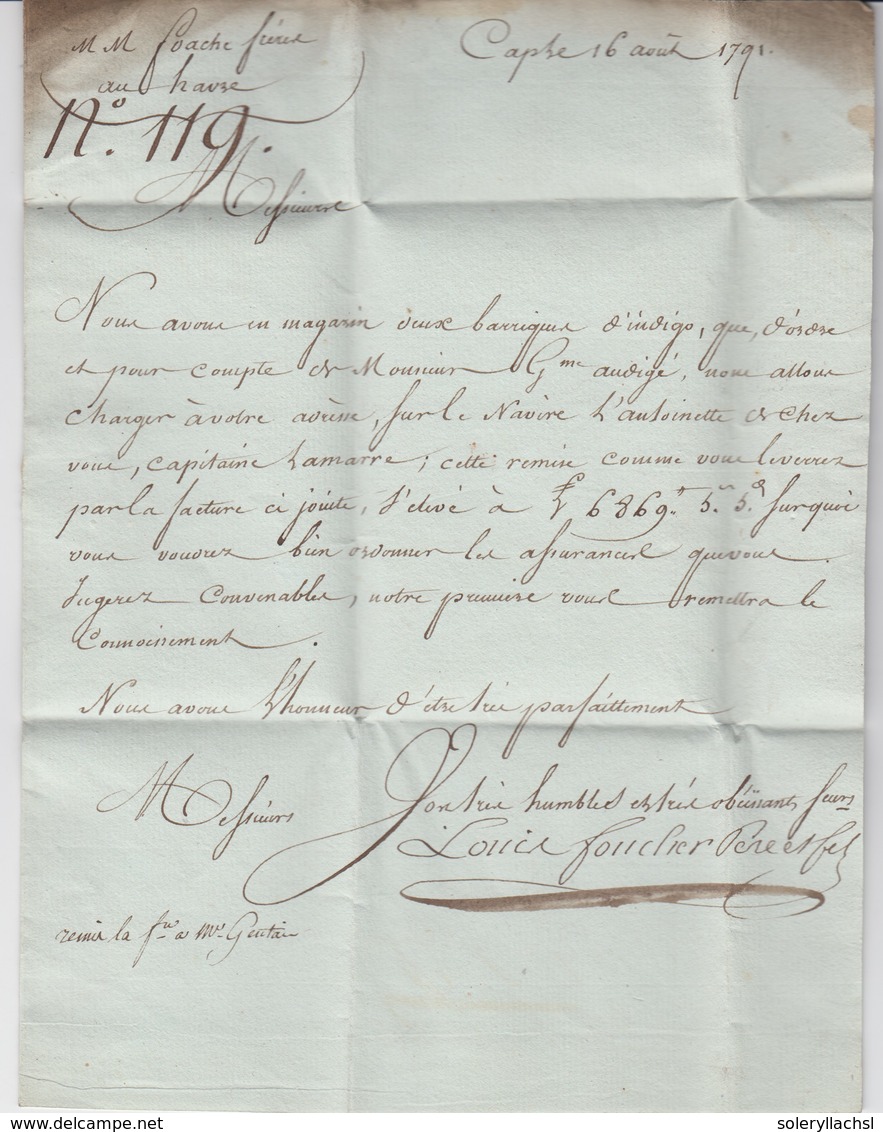 M M foache frères
au havre
Cap fre 16 août 1791.
N.° 119.
Messieurs
Nous avons en magazin deux barriques d'indigo, que, d'ordre
et pour compte de Monsieur G.me audigé, nous allons
charger à votre adresse, sur le Navire L'antoinette de chez
vous, capitaine Lamarre; cette remise comme vous le verrez
par la facture ci jointe, s'elevé à 6869. 5. 5. Surquoi
vous voudrez bien ordonner les assurances que vous
Jugerez Convenables, notre premiere vous remettra le
Connoissement.
Nous avons L'honneur d'être très parfaittement
Messieurs
Vos très humbles et très obéissants servrs
Louis foucher Pere et fils
remis la fre a Mr.
soleryllachsl